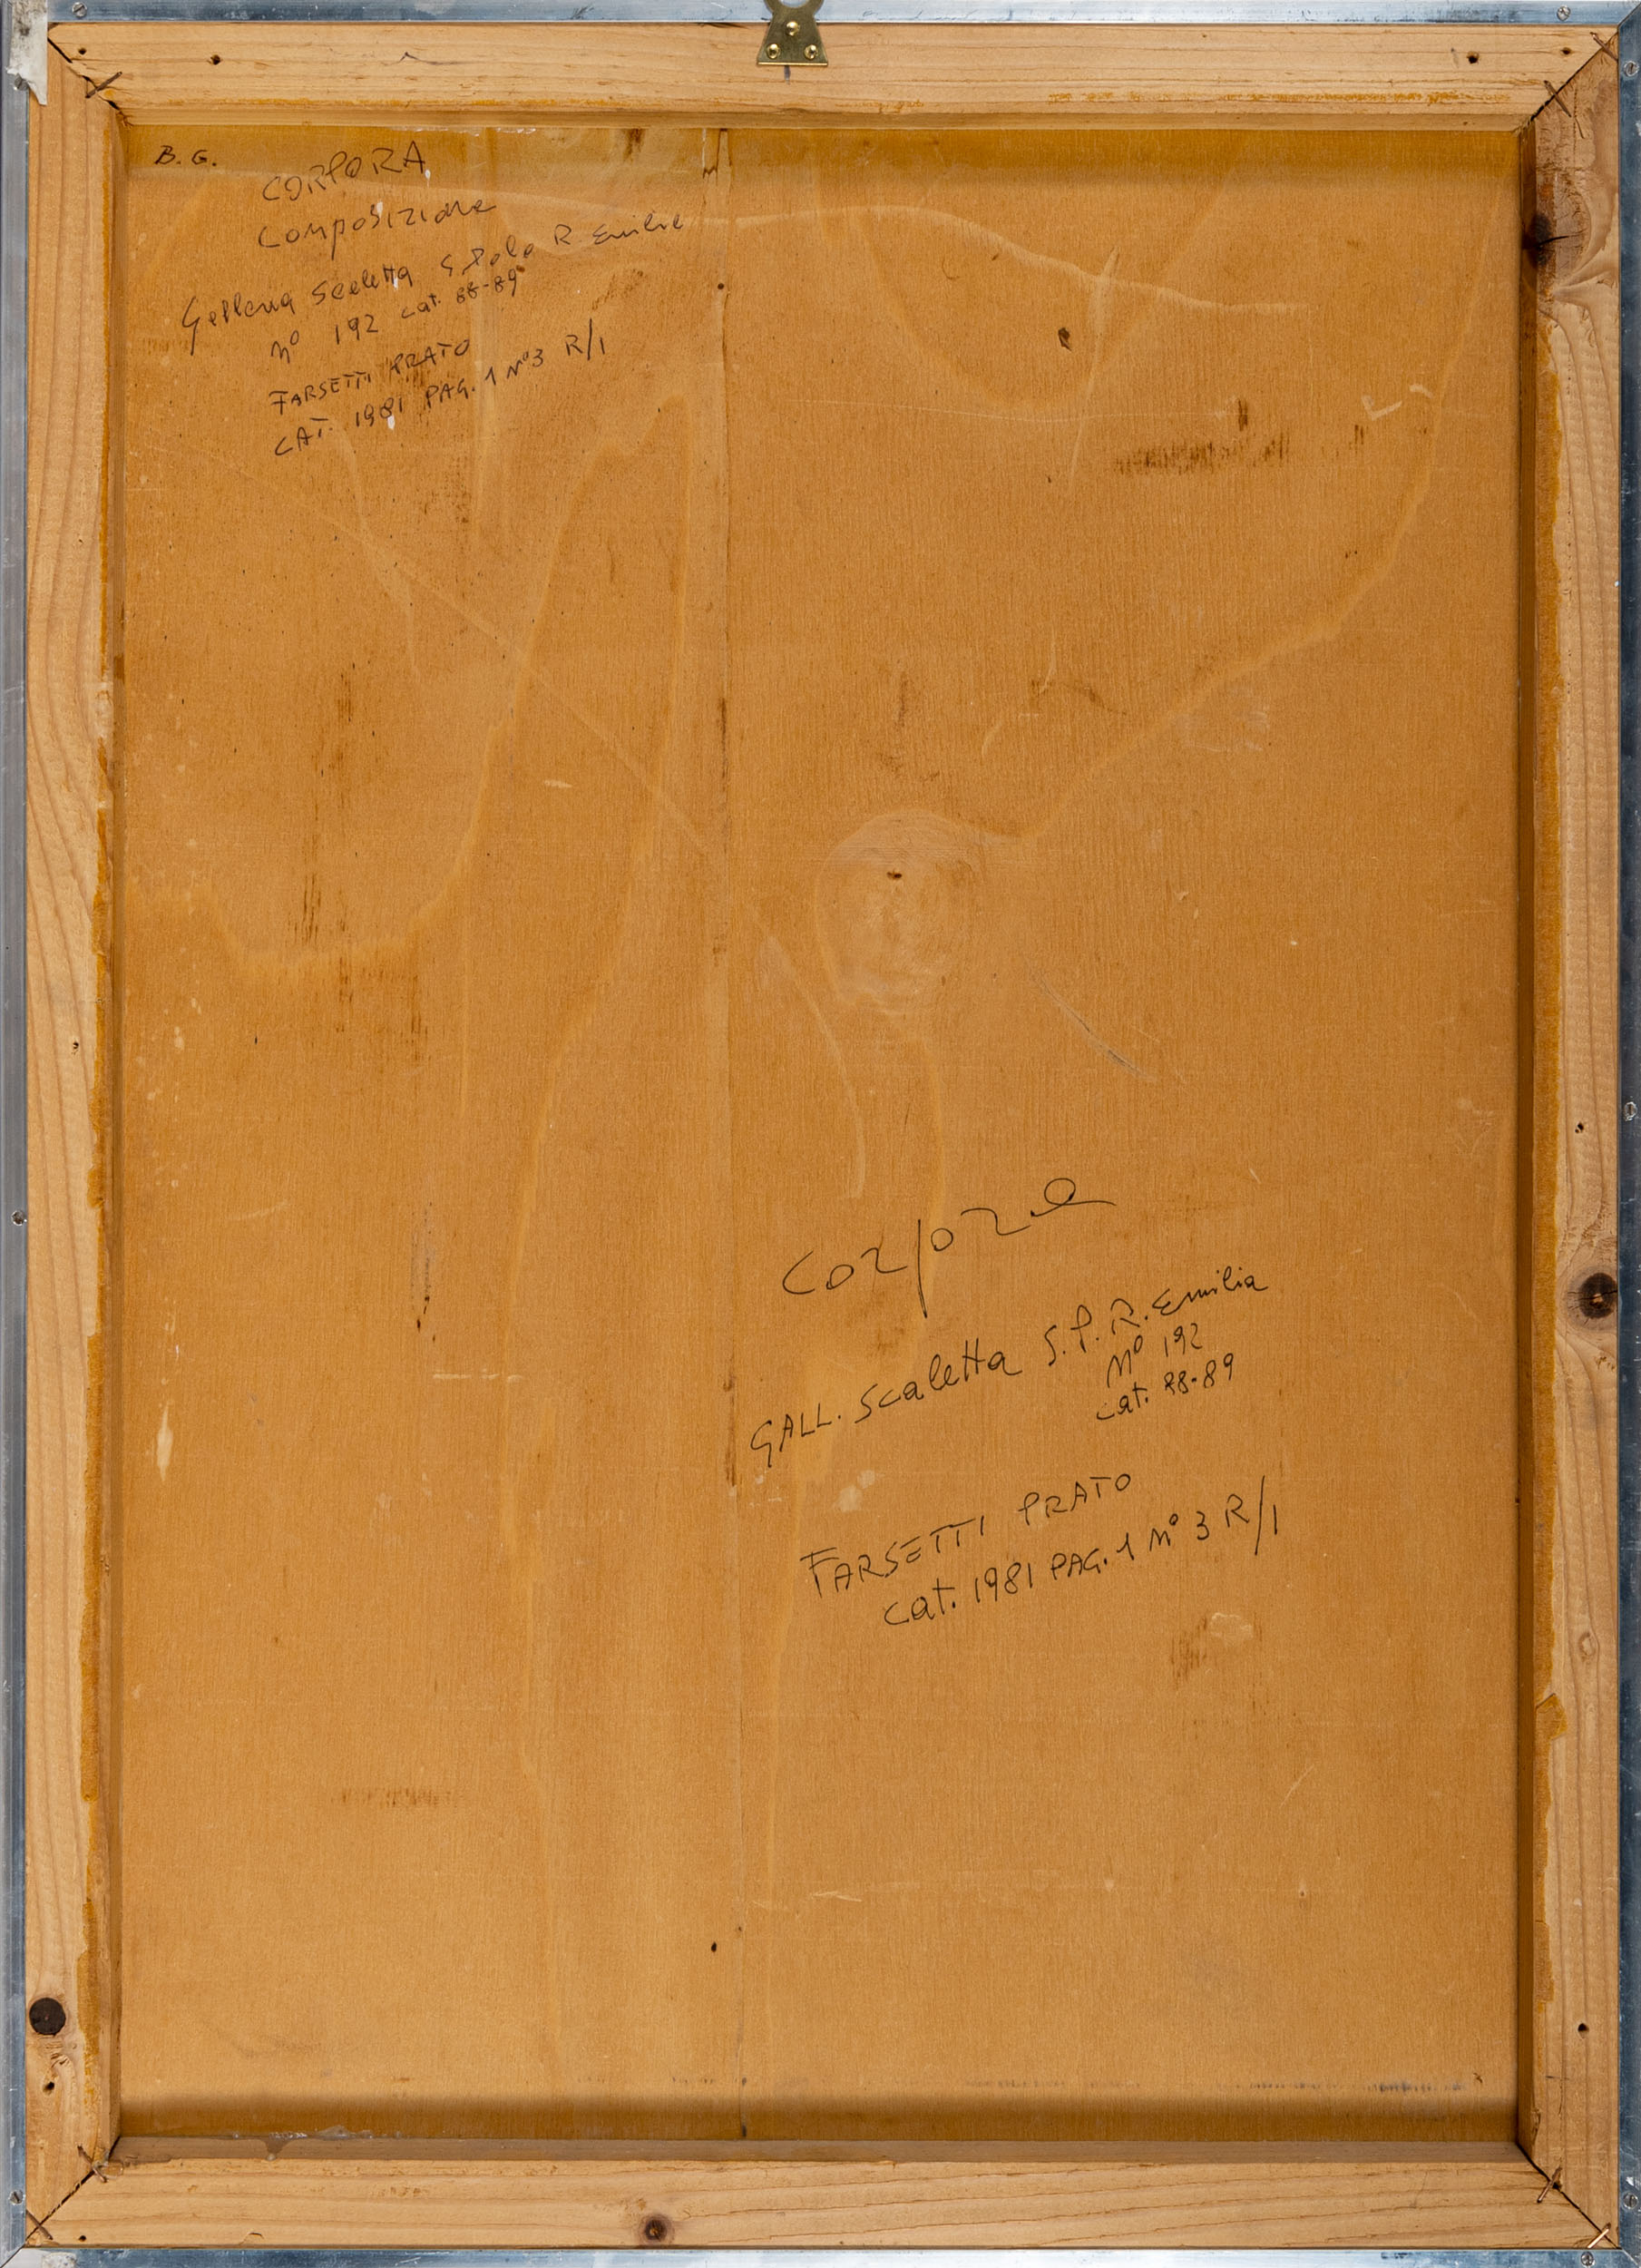 B. G.
CORPORA
Composizione
Galleria Scaletta S. Polo R Emilia
n° 192 cat. 88-89
FARSETTI PRATO
CAT. 1981 PAG. 1 N°3 R/1
Corpora
GALL. Scaletta S. P. R. Emilia
N° 192
cat. 88-89
FARSETTI PRATO
cat. 1981 PAG. 1 N° 3 R/1